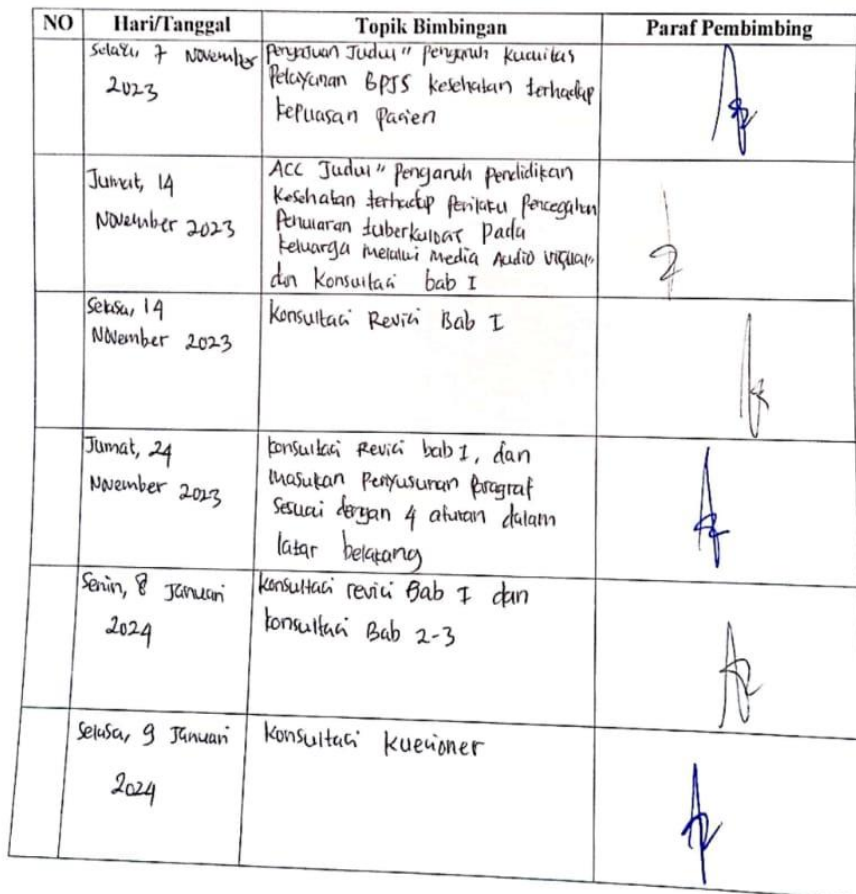 NO Hari/Tanggal Topik Bimbingan Paraf Pembimbing
Selasa, 7 November
2023
Pengajuan Judul " pengaruh kualitas
Pelayanan BPJS kesehatan terhadap
kepuasan pasien
Jumat, 14
November 2023
ACC Judul " Pengaruh pendidikan
Kesehatan terhadap perilaku pencegahan
Penularan tuberkulosis pada
keluarga melalui Media Audio visual"
dan konsultasi bab I
Selasa, 14
November 2023
konsultasi Revisi Bab I
Jumat, 24
November 2023
konsultasi Revisi bab 1, dan
masukan penyusunan paragraf
sesuai dengan 4 aturan dalam
latar belakang
Senin, 8 Januari
2024
konsultasi revisi Bab I dan
konsultasi Bab 2-3
Selasa, 9 Januari
2024
konsultasi kuesioner